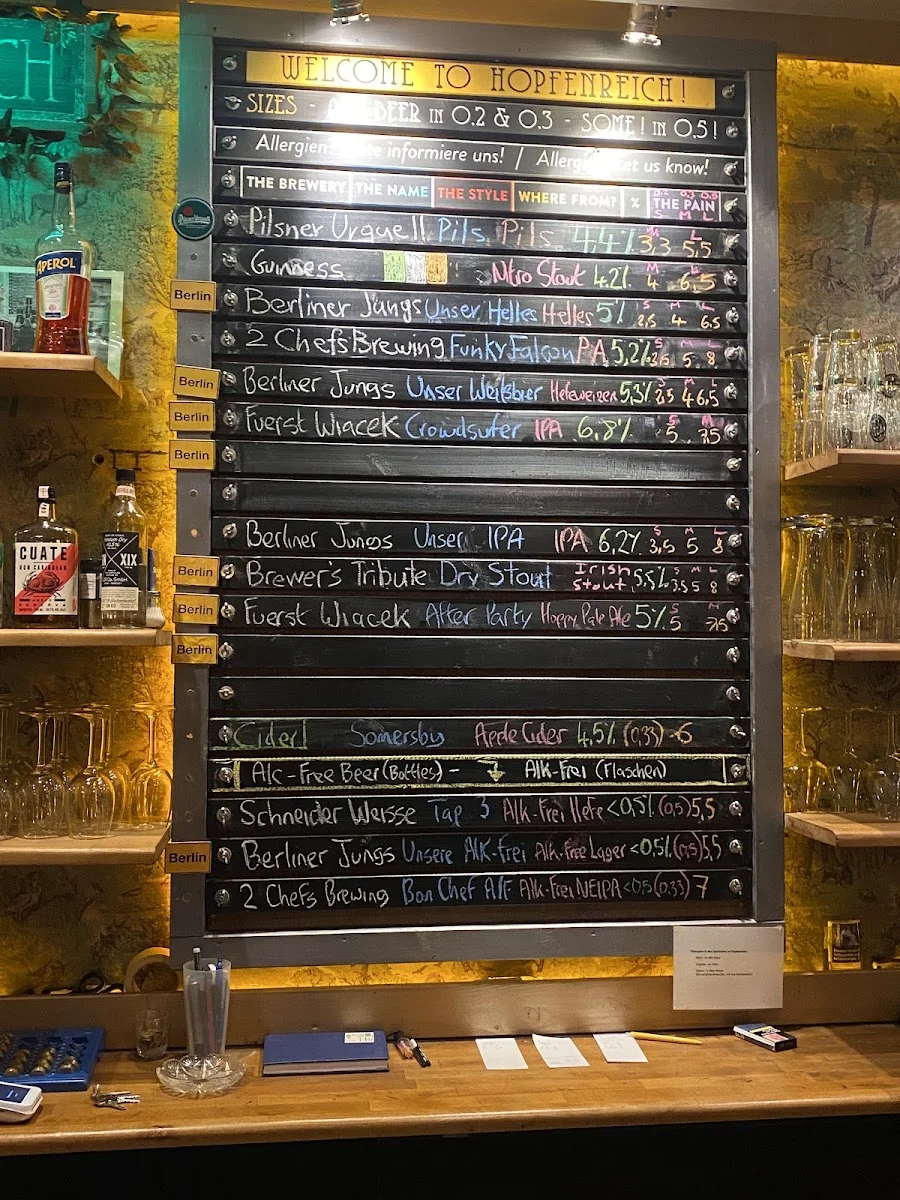 CH
WELCOME TO HOPFENREICH!
SIZES - BEER IN 0.2 & 0.3 - SOME! IN 0.5!
Allergien? informiere uns! / let us know!
THE BREWERY THE NAME THE STYLE WHERE FROM? % THE PAIN
S M L
Pilsner Urquell Pils Pils 4,4% M 3,3 L 5,5
Guinness Nitro Stout 4,2% M 4 L 6,5
Berlin
Berliner Jungs Unser Helles Helles 5% S 2,5 M 4 L 6.5
2 Chefs Brewing Funky Falcon PA 5,2% S 3,5 M 5 L 8
Berlin
Berliner Jungs Unser Weißbier Hefeweizen 5,3% S 2,5 M 4 L 6,5
Berlin
Fuerst Wiacek Crowdsurfer IPA 6,8% S 5 M 7,5
Berlin
Berliner Jungs Unser IPA IPA 6,2% S 3,5 M 5 L 8
Berlin
Brewer's Tribute Dry Stout Irish Stout 5,5% S 3,5 M 5 L 8
Berlin
Fuerst Wiacek After Party Hoppy Pale Ale 5% S 5 M 7,5
Berlin
Cider! Somersby Apple Cider 4,5% (0,33) - 5
Alc-Free Beer (Bottles) - Alk-Frei (Flaschen)
Schneider Weisse Tap 3 Alk-Frei Hefe <0,5% (0,5) 5,5
Berlin
Berliner Jungs Unsere Alk-frei Alk-Free Lager <0,5% (0,5) 5,5
2 Chefs Brewing Bon Chef A/F Alk-Frei NEIPA <0,5 (0,33) 7
APEROL
CUATE
RON CARIBEAN
XIX